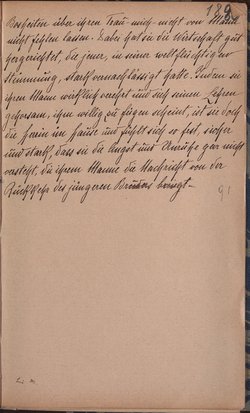 189
Bosheiten über ihren Frau nicht nicht von
nicht fehlen lassen. Dabei hat sie die Wirtschaft gut
hergerichtet, die jener, in seiner weltflüchtigen
Stimmung, stark vernachlässigt hatte. Indem sie
ihren Manne wirklich verehrt und sich seinen Lehren
gehorsam, ihm willig zu fügen scheint, ist sie doch
die Herrin im Hause und fühlt sich so fest, sicher
und stark, dass sie die Angst und Unruhe gar nicht
versteht, die ihrem Manne die Nachricht von der
Rückkehr des jüngeren Bruders bringt.
91